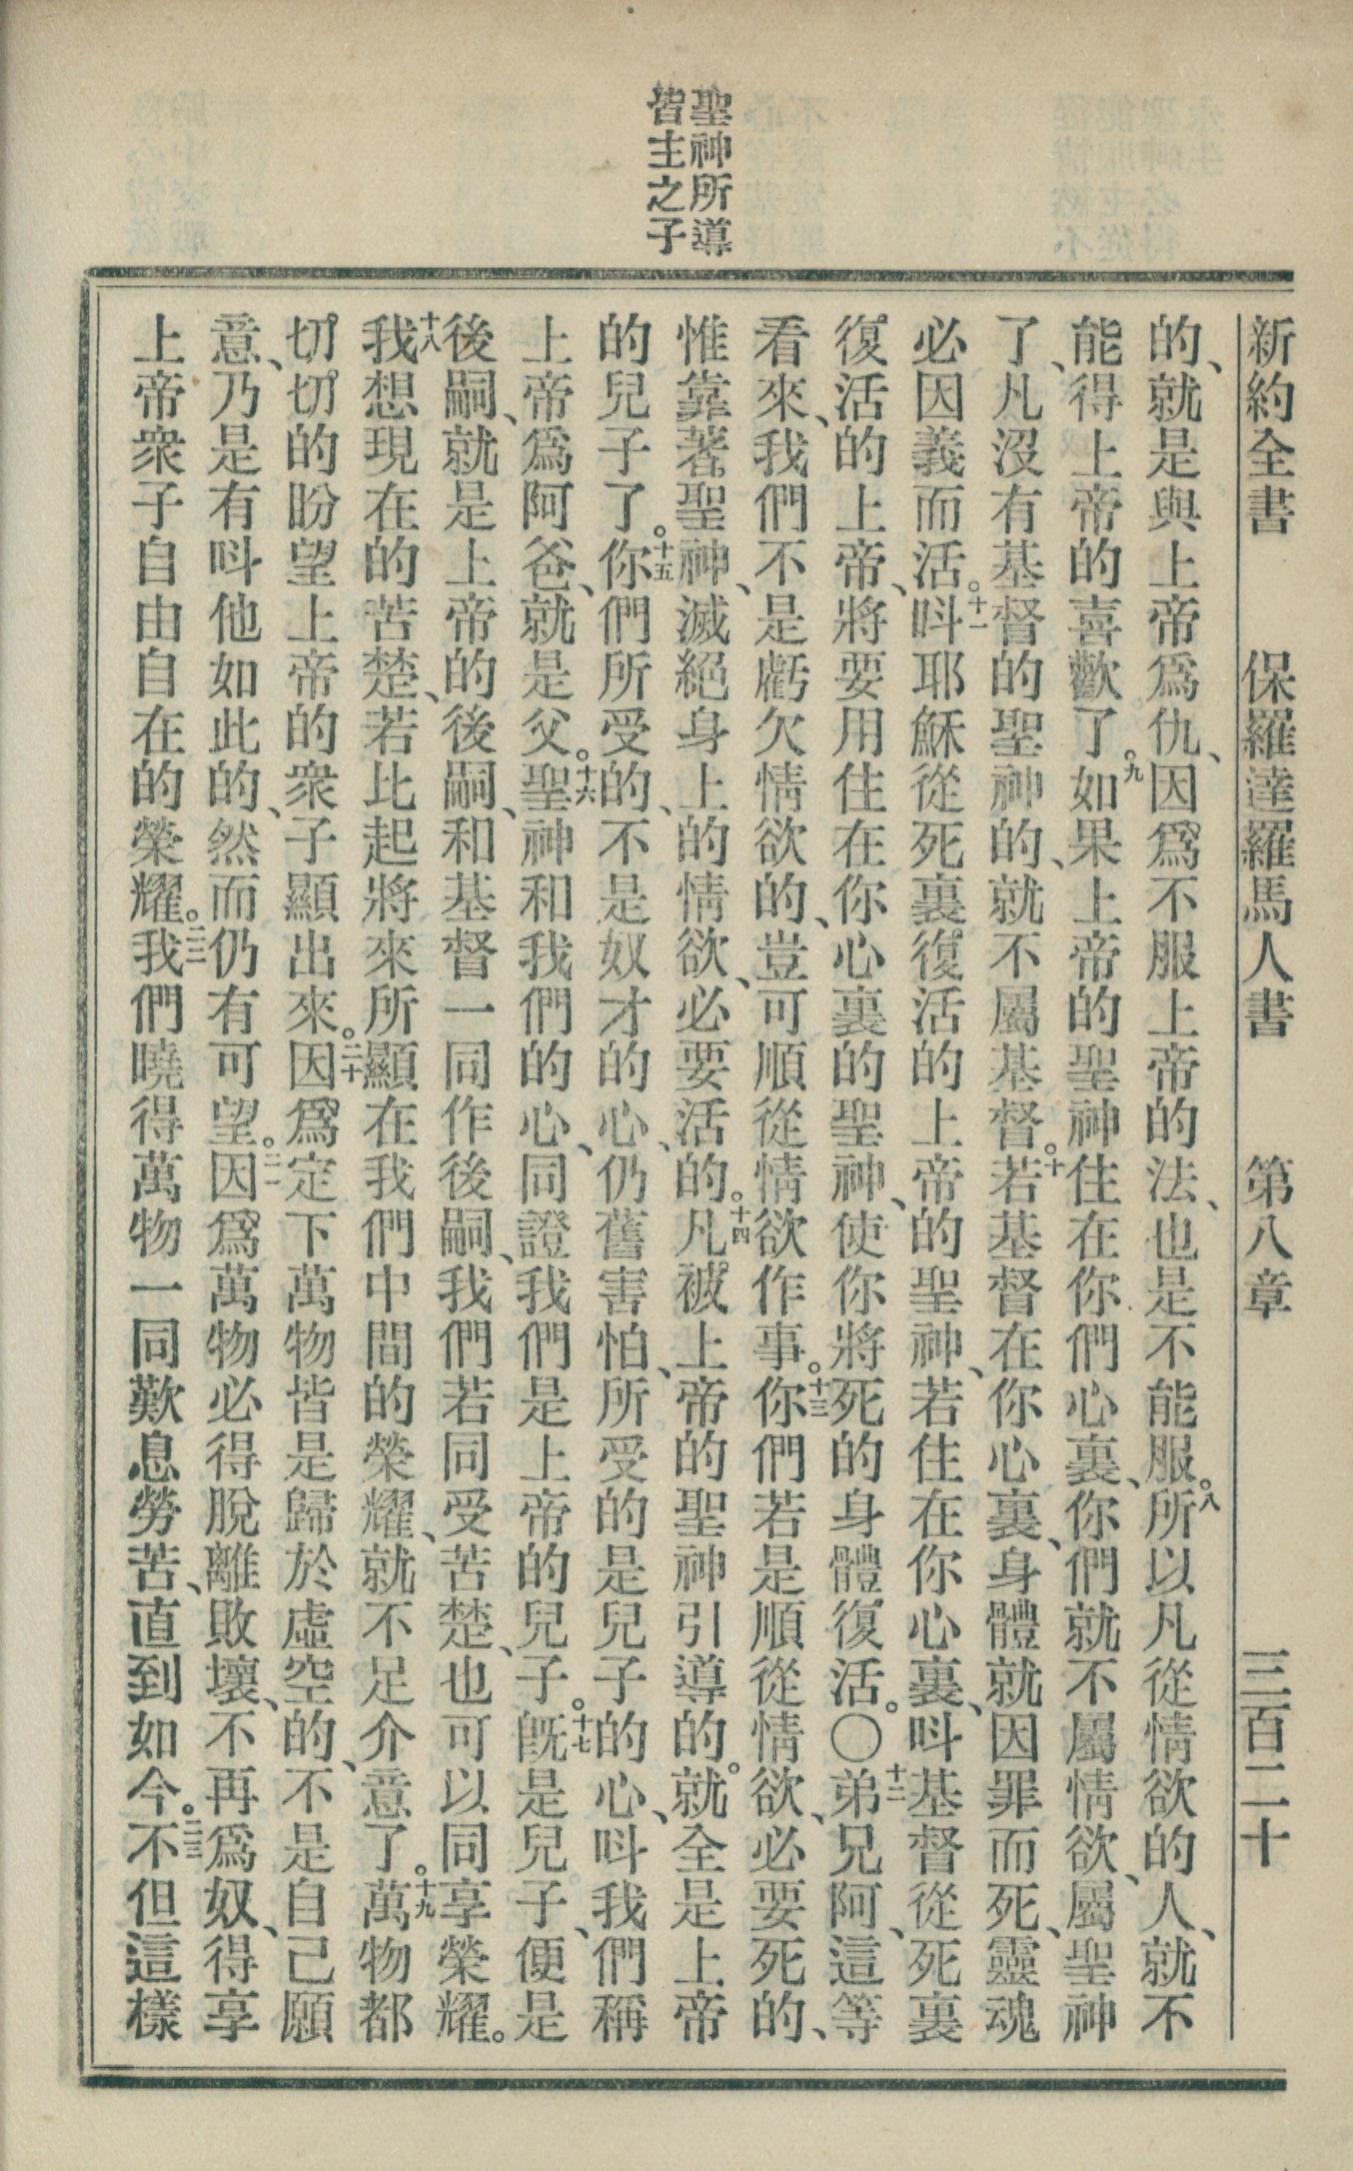 聖神所導
皆主之子
新約全書 保羅達羅馬人書 第八章 三百二十
的、就是與上帝爲仇、因爲不服上帝的法、也是不能服。八所以凡從情欲的人、就不
能得上帝的喜歡了。九如果上帝的聖神住在你們心裏、你們就不屬情欲、屬聖神
了、凡沒有基督的聖神的、就不屬基督。十若基督在你心裏、身體就因罪而死、靈魂
必因義而活。十一呌耶穌從死裏復活的上帝的聖神、若住在你心裏、呌基督從死裏
復活的上帝、將要用住在你心裏的聖神、使你將死的身體復活。〇十二弟兄阿、這等
看來、我們不是虧欠情欲的、豈可順從情欲作事。十三你們若是順從情欲、必要死的、
惟靠著聖神、滅絕身上的情欲、必要活的。十四凡被上帝的聖神引導的。就全是上帝
的兒子了。十五你們所受的、不是奴才的心、仍舊害怕、所受的是兒子的心、呌我們稱
上帝爲阿爸、就是父。十六聖神和我們的心、同證我們是上帝的兒子。十七旣是兒子、便是
後嗣、就是上帝的後嗣、和基督一同作後嗣、我們若同受苦楚、也可以同享榮耀。
十八我想現在的苦楚、若比起將來所顯在我們中間的榮耀、就不足介意了。十九萬物都
切切的盼望上帝的衆子顯出來。二十因爲定下萬物皆是歸於虛空的、不是自己願
意、乃是有呌他如此的、然而仍有可望。二一因爲萬物必得脫離敗壞、不再爲奴、得享
上帝衆子自由自在的榮耀。二二我們曉得萬物一同歎息勞苦、直到如今。二三不但這樣